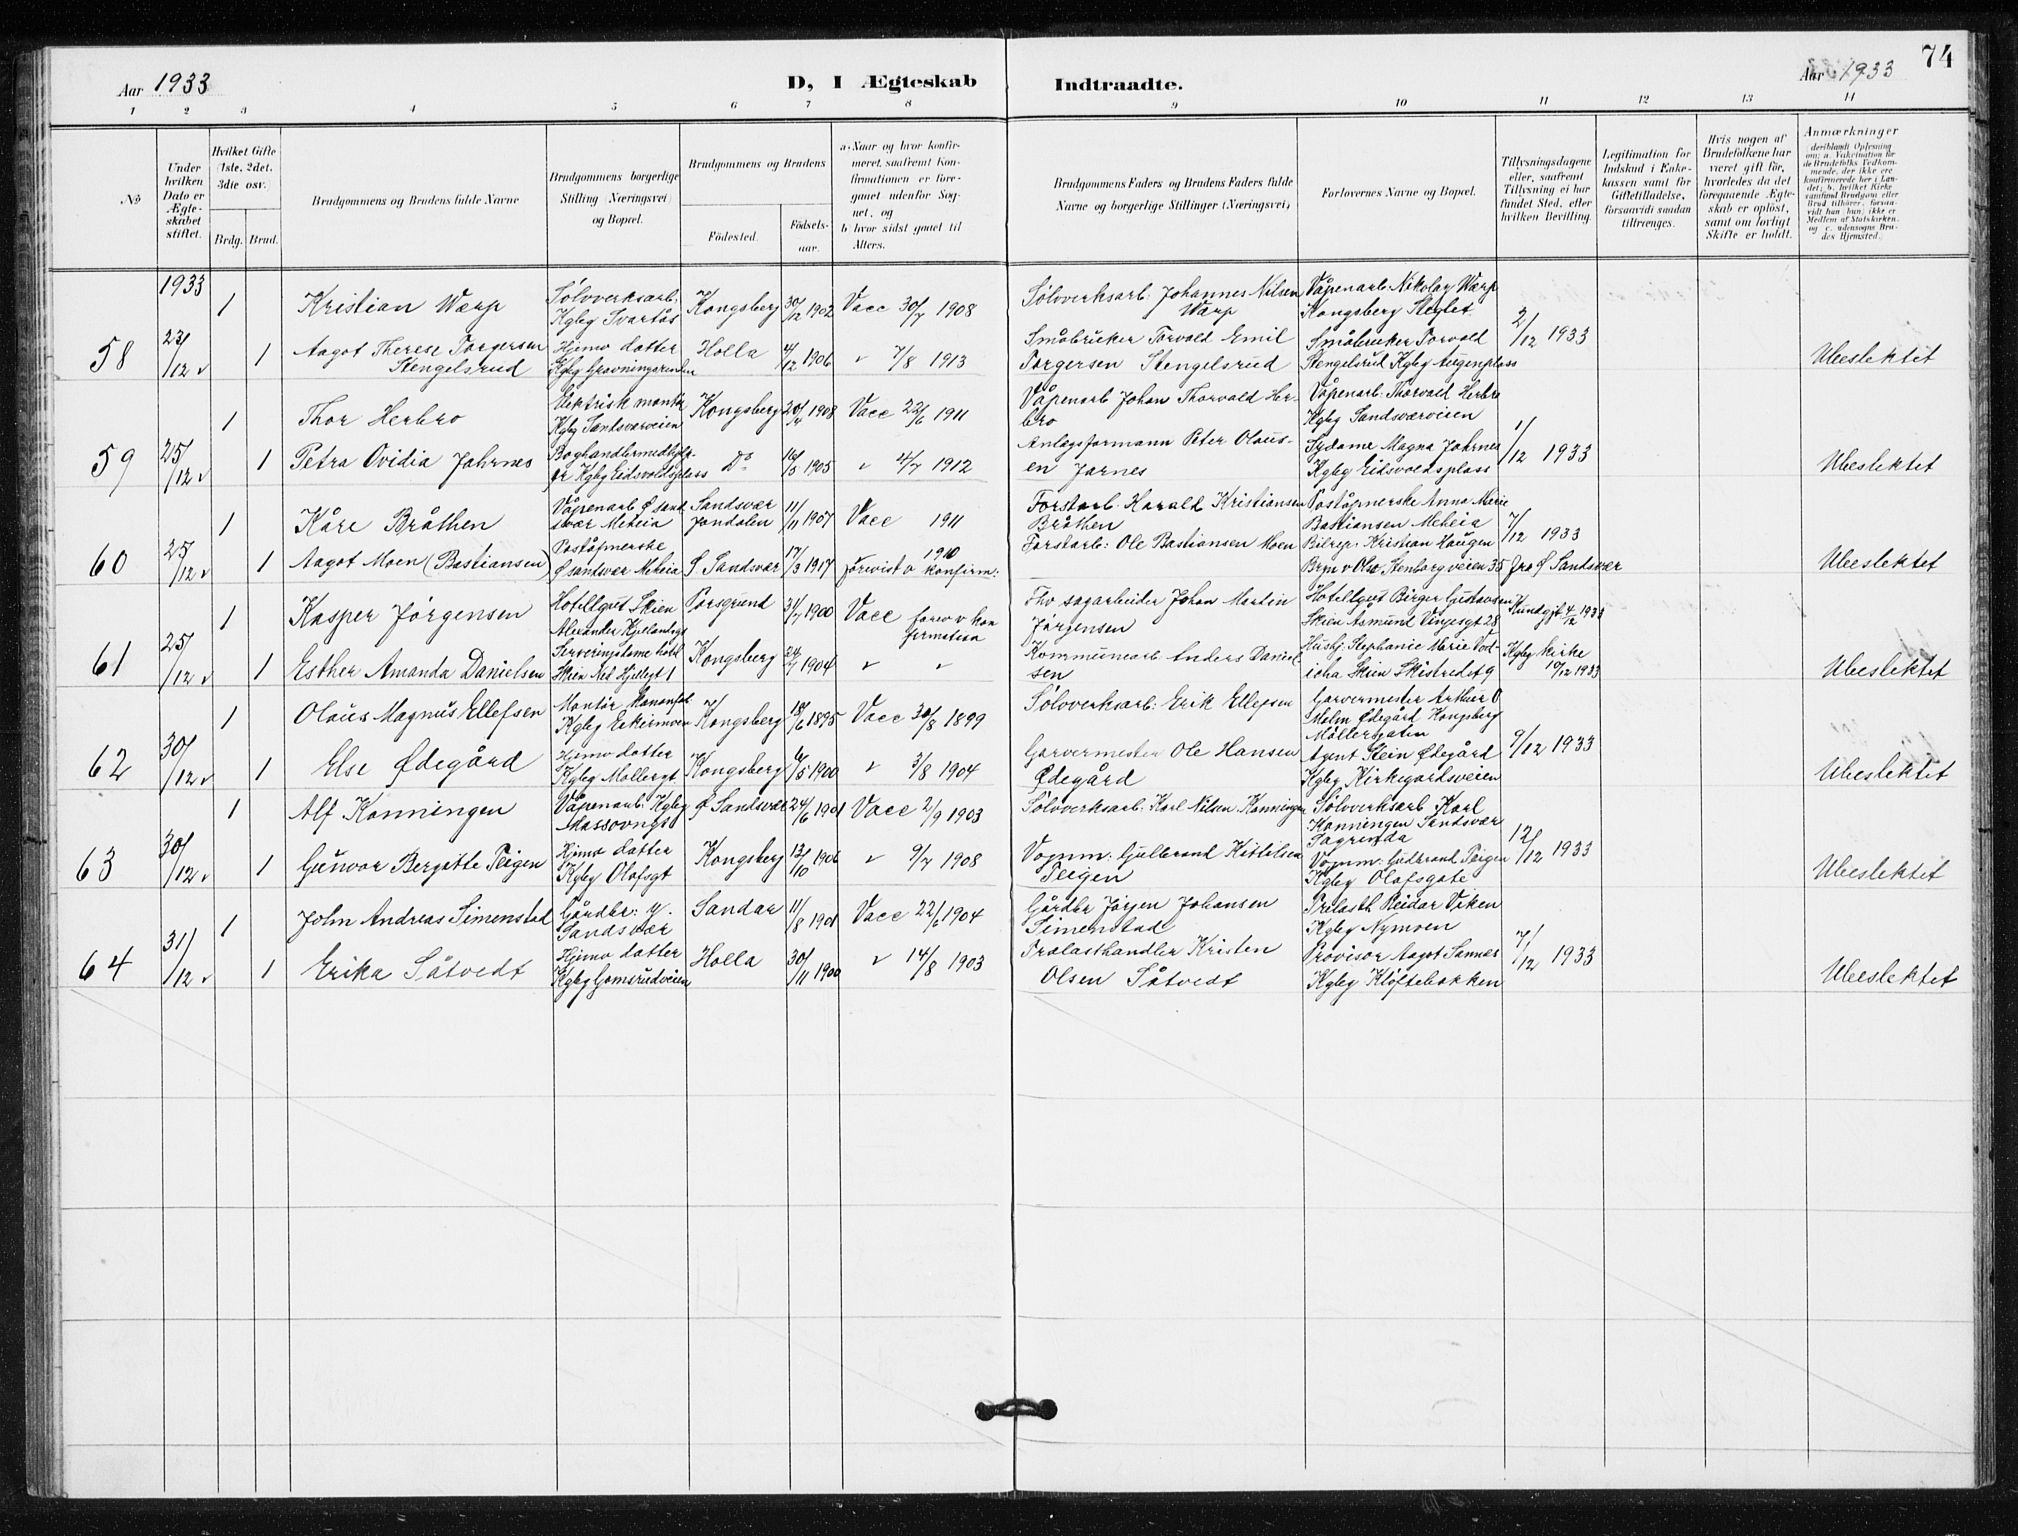 74
Aar 1933
D, I Ægteskab
Indtraadte.
Aar 1933
1 2 3 4 5 6 7 8 9 10 11 12 13 14
No
Under hvilken Dato er Ægteskabet stiftet.
Hvilket Gifte (1ste, 2det, 3die osv.)
Brdg. Brud.
Brudgommens og Brudens fulde Navne
Brudgommens borgerlige Stilling (Næringsvei) og Bopæl.
Brudgommens og Brudens
Fødested.
Fødselsaar.
a. Naar og hvor konfirmeret, saafremt Konfirmationen er foregaaet udenfor Sognet, og
b. hvor sidst gaaet til Alters.
Brudgommens Faders og Brudens Faders fulde Navne og borgerlige Stillinger (Næringsvei)
Forlovernes Navne og Bopæl.
Tillysningsdagene eller, saafremt Tillysning ei har fundet Sted, efter hvilken Bevilling.
Legitimation for Indskud i Enkekassen samt for Giftetilladelse, forsaavidt saadan tiltrænges.
Hvis nogen af Brudefolkene har været gift før, hvorledes da det foregaaende Ægteskab er opløst, samt om lovligt Skifte er holdt.
Anmærkninger
(deriblandt Oplysning om: a. Vakcination for de Brudefolks Vedkommende, der ikke ere konfirmerede her i Landet; b. hvilket Kirkesamfund Brudgom eller Brud tilhører, forsaavidt han (hun) ikke er Medlem af Statskirken, og c. udensogns Brudes Hjemsted.)
1933
1 Kristian Wærp Sølvverksarb. Kgbg Svartås Kongsberg 30/12 1902 Vacc 30/7 1908 Sølvverksarb. Johannes Nilsen Wærp Våpenarb. Nikolay Wærp Kongsberg Steglet
58 23/12 1 Aagot Therese Torgersen Stengelsrud Hjemv datter Holla 4/12 1906 " 7/8 1913 Småbruker Torvald Emil Torgersen Stengelsrud Småbruker Torvald Stengelsrud Kgbg Augenplass 2/12 1933 Ubeslektet
1 Thor Herbro Elektrisk montør Kgbg Sandsværveien Kongsberg 20/4 1908 Vacc 22/6 1911 Våpenarb Johan Thorvald Herbro Våpenarb. Thorvald Herbro Kgbg Sandsværveien
59 25/12 1 Petra Ovidia Jahrnes Kgbg Eidsvoldsplass Do 16/5 1905 " 4/7 1912 Anlegsformann Peter Olaussen Jarnes Sydame Magna Jahrnes Kgbg Eidsvoldsplass 1/12 1933 Ubeslektet
1 Kåre Bråthen Våpenarb Ø Sandsvær Meheia Sandsvær Jondalen 11/11 1907 Vacc 1911 Forstarb. Harald Kristiansen Bråthen Poståpnerske Anna Marie Bastiansen Meheia
60 25/12 1 Aagot Moen (Bastiansen) Poståpnerske Ø Sandsvær Meheia Ø Sandsvær 17/3 1917 forevist v konfirm. 1910 Forstarb: Ole Bastiansen Moen Bilrep. Kristian Haugen 7/12 1933 fra Ø Sandsvær Ubeslektet
1 Kasper Jørgensen Hotellgut Skien Alexander Kjellandsgt Porsgrund 31/7 1900 Vacc forev v konfirmation Fhv sagarbeider Johan Martin Jørgensen Hotellgut Birger Gustavsen Skien Asmund Vinjesgt 28 Kundgjt 4/12 1933
61 25/12 1 Esther Amanda Danielsen Serveringsdame hotel Kongsberg 24/7 1904 " " Kommunearb Anders Danielsen Husbj. Stephanie Marie Skien Kgbg kirke 10/12 1933 Ubeslektet
1 Olaus Magnus Ellefsen Montør Kgbg Eikermoen Kongsberg 18/6 1895 Vacc 30/8 1899 Sølvverksarb: Erik Ellefsen Garvermester Arthur O Malm Ødegård Kongsberg Møllergaten
62 30/12 1 Else Ødegård Hjemv datter Kgbg Møllergt Kongsberg 6/5 1900 " 3/8 1904 Garvermester Ole Hansen Ødegård Agent Stein Ødegård Kgbg Kirkegårdsveien 9/12 1933 Ubeslektet
1 Alf Konningen Våpenarb. Kgbg Ø Sandsvær 24/6 1901 Vacc 2/9 1903 Sølvverksarb. Karl Nilsen Konningen Sølvverksarb Karl Konningen Sandsvær
63 30/12 1 Gunvor Bergitte Teigen Hjemv datter Kgbg Olafsgt Kongsberg 13/10 1906 " 9/7 1908 Vognm: Gulbrand Kittilsen Teigen Vognm: Gudbrand Teigen Kgbg Olafsgate 12/12 1933 Ubeslektet
1 John Andreas Simenstad Gårdbr: Y. Sandsvær Sandar 11/8 1901 Vacc 22/6 1904 Gårdbr Jørgen Johansen Simenstad Reidar Viken Kgbg Nymoen
64 31/12 1 Erika Såtvedt Hjemv datter Kgbg Gomsrudveien Holla 30/11 1900 " 14/8 1903 Trælasthandler Kristen Olsen Såtvedt Provisor Aagot Sannes Kgbg Kløftebakken 7/12 1933 Ubeslektet